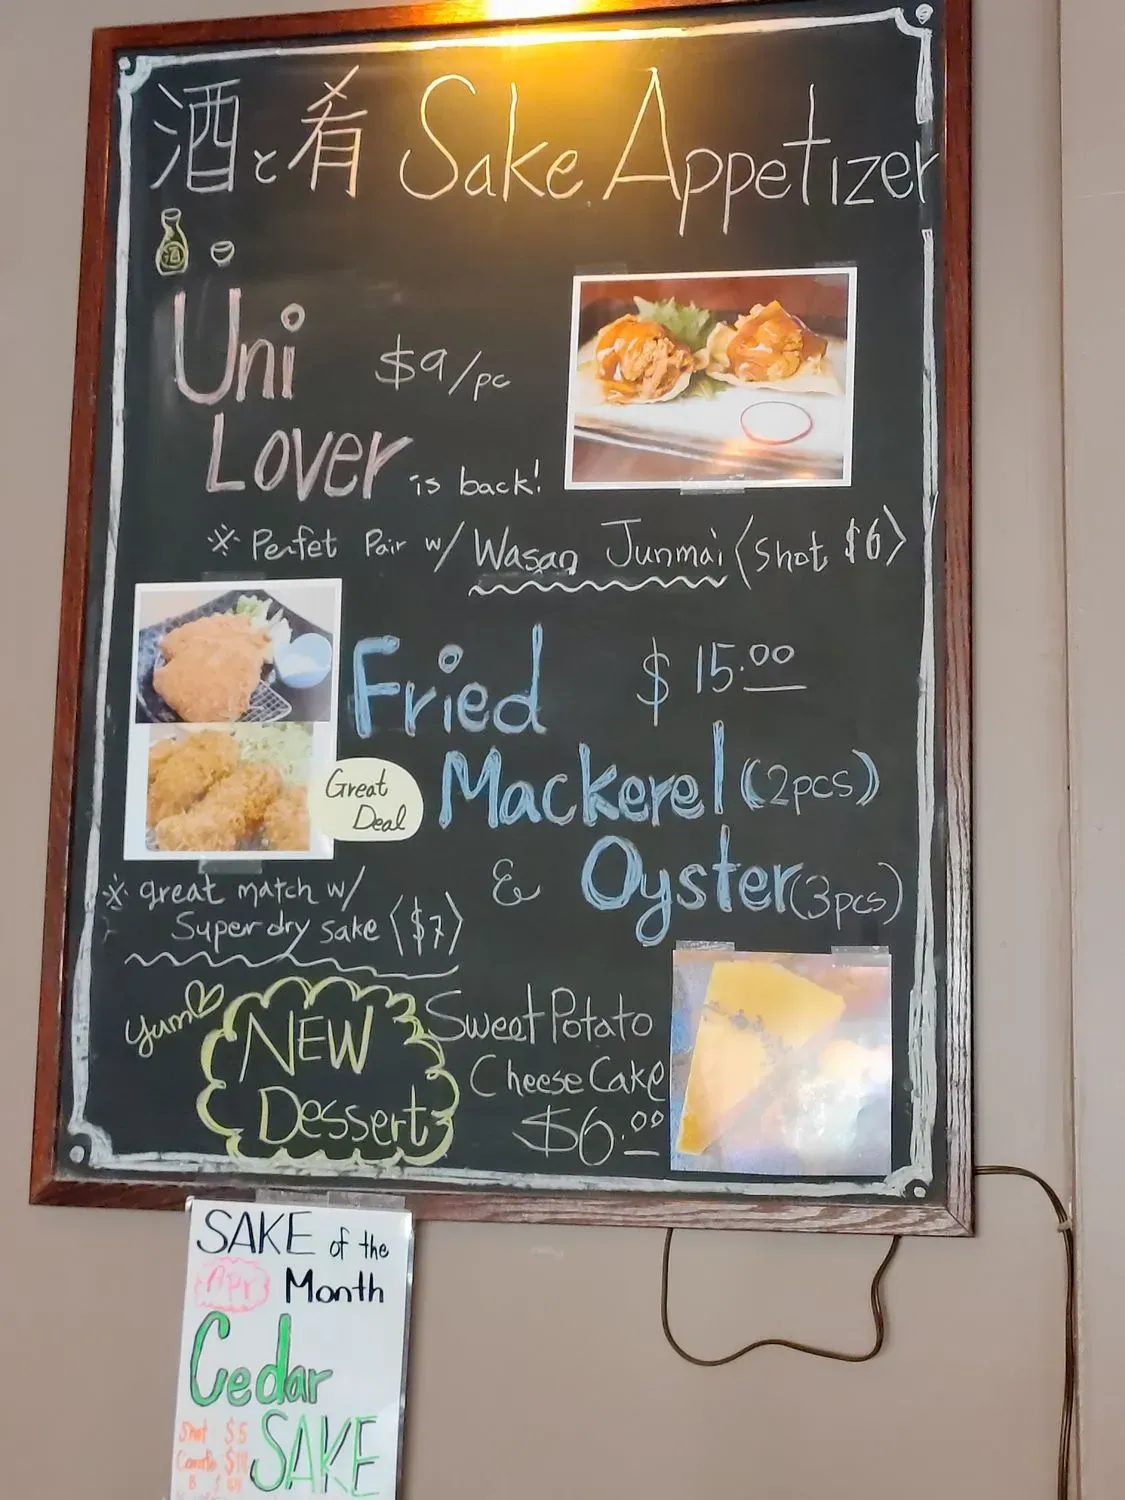 酒と肴 Sake Appetizer
酒
Uni
$9/pc
Lover is back!
※ Perfet Pair w/ Wasan Junmai 〈Shot $6〉
Fried $15.00
Great
Deal
Mackerel (2pcs)
& Oyster (3pcs)
※ great match w/
Super dry sake 〈$7〉
Yum
NEW
Dessert
Sweet Potato
Cheese Cake
$6.00
SAKE of the
Apr Month
Cedar
SAKE
Shot $5
Carafe